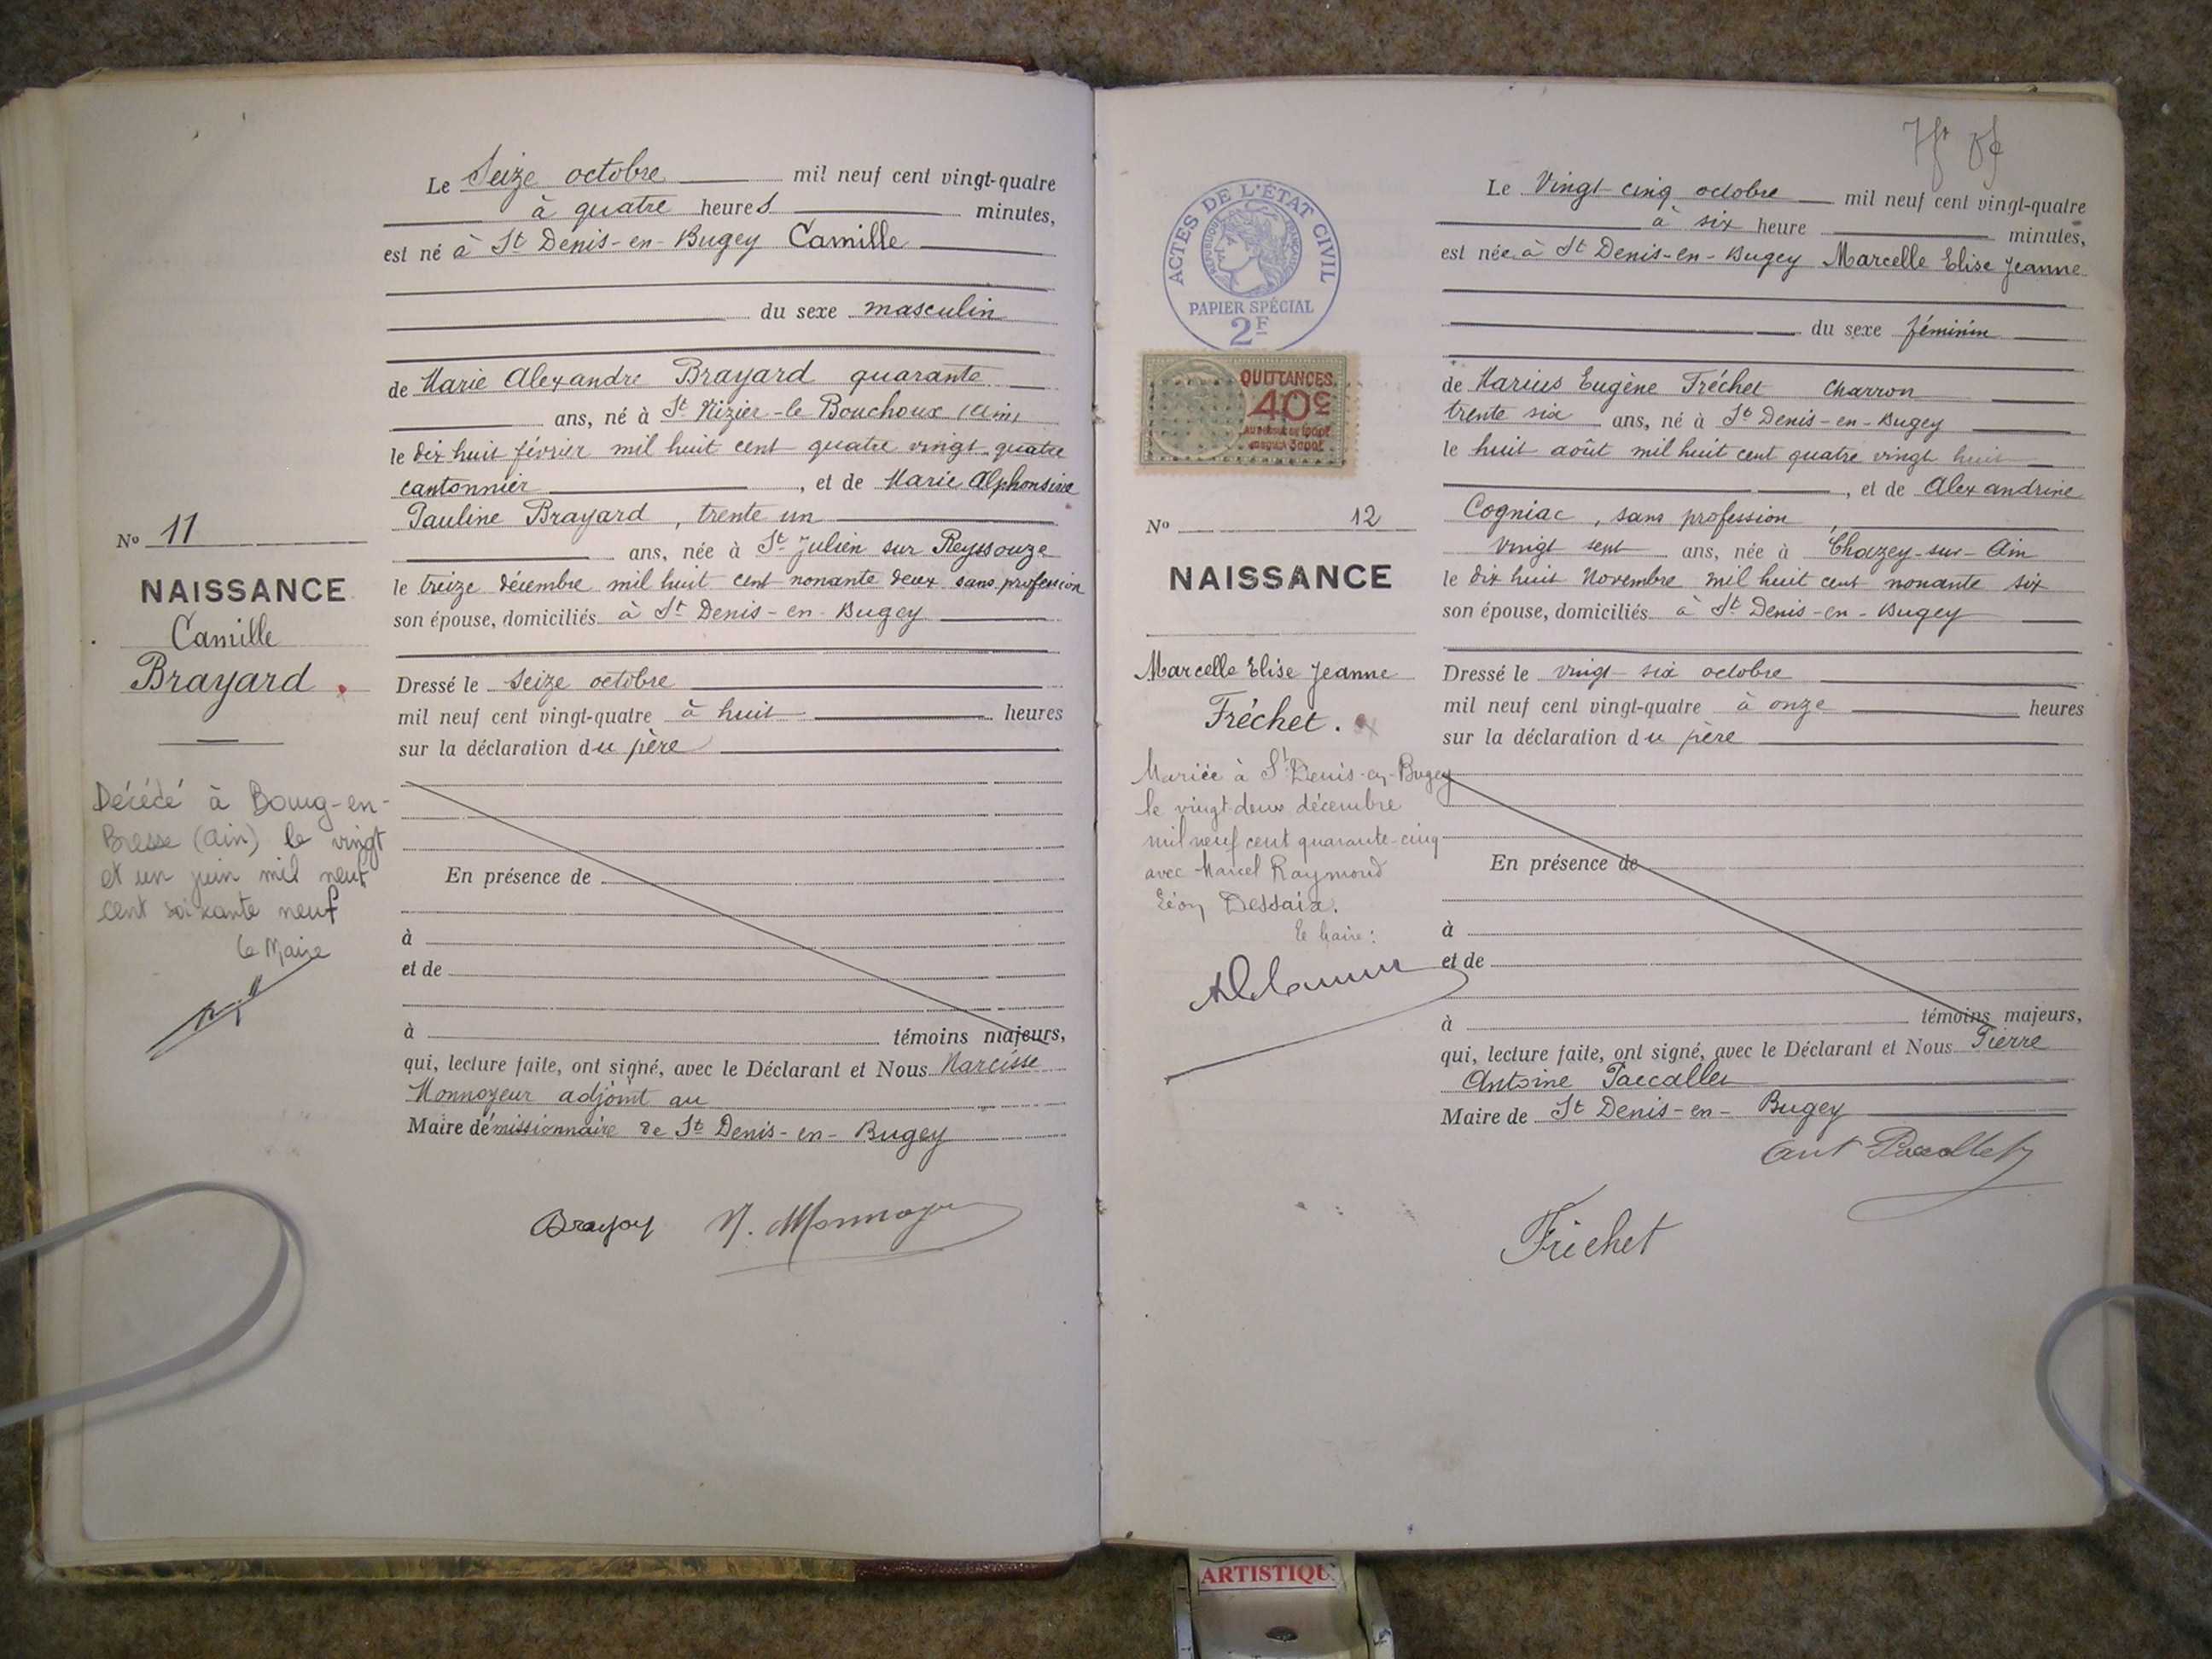 Le Seize octobre mil neuf cent vingt-quatre
à quatre heures minutes,
est né à St Denis-en-Bugey Camille
du sexe masculin
de Marie Alexandre Brayard quarante
ans, né à St Nizier-le Bouchoux (Ain)
le dix huit février mil huit cent quatre vingt quatre
cantonnier, et de Marie Alphonsine
Pauline Brayard, trente un
ans, née à St Julien sur Reyssouze
le treize décembre mil huit cent nonante deux sans profession
son épouse, domiciliés à St Denis-en-Bugey
No 11
NAISSANCE
Camille
Brayard
Dressé le Seize octobre
mil neuf cent vingt-quatre à huit heures
sur la déclaration du père
Décédé à Bourg-en-
Bresse (Ain) le vingt
et un juin mil neuf
cent soixante neuf
Le Maire
En présence de
à
et de
à témoins majeurs,
qui, lecture faite, ont signé, avec le Déclarant et Nous Narcisse
Monnoyeur adjoint au
Maire démissionnaire de St Denis-en-Bugey
N. Monnoyeur
ACTES DE L'ÉTAT CIVIL
RÉPUBLIQUE FRANÇAISE
PAPIER SPÉCIAL
2F
QUITTANCES
40c
Le Vingt-cinq octobre mil neuf cent vingt-quatre
à six heure minutes,
est née à St Denis-en-Bugey Marcelle Elise Jeanne
du sexe féminin
de Marius Eugène Fréchet charron
trente six ans, né à St Denis-en-Bugey
le huit août mil huit cent quatre vingt huit
, et de Alexandrine
Cogniac, sans profession,
vingt sept ans, née à Chazey-sur-Ain
le dix huit Novembre mil huit cent nonante six
son épouse, domiciliés à St Denis-en-Bugey
No 12
NAISSANCE
Marcelle Elise Jeanne
Fréchet.
Dressé le vingt-six octobre
mil neuf cent vingt-quatre à onze heures
sur la déclaration du père
Mariée à St Denis-en-Bugey
le vingt deux décembre
mil neuf cent quarante-cinq
avec Marcel Raymond
Léon Dessaix.
Le Maire:
En présence de
à
et de
à témoins majeurs,
qui, lecture faite, ont signé, avec le Déclarant et Nous Pierre
Antoine Paccallet
Maire de St Denis-en-Bugey
Ant Paccallet
Fréchet
ARTISTIQU